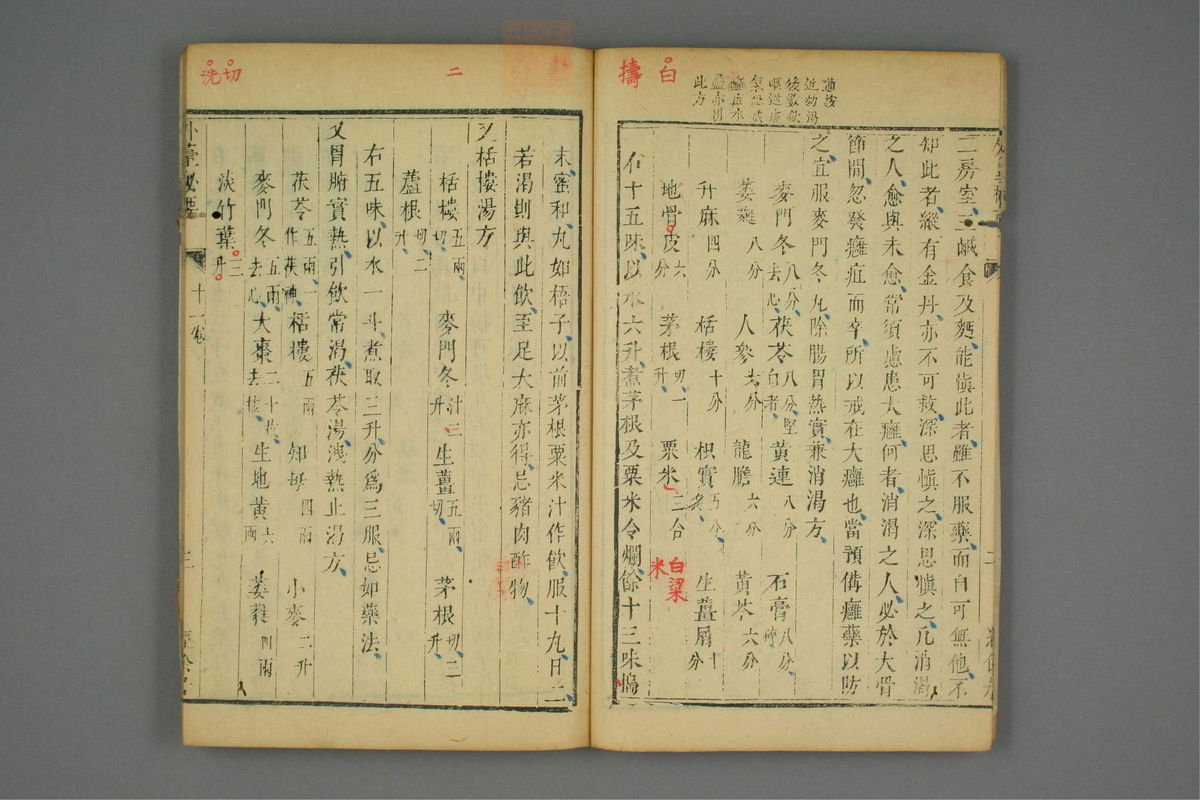 二房室三鹹食及麪能愼此者雖不服藥而自可無他不
知此者縱有金丹亦不可救深思愼之深思愼之凡消渴
之人愈與未愈常須慮患大癰何者消渴之人必於大骨
節間忽發癰疽而卒所以戒在大癰也當預備癰藥以防
之宜服麥門冬丸除腸胃熱實兼消渴方
麥門冬八分去心 茯苓八分堅白者 黃連八分 石膏八分碎
萎蕤八分 人參六分 龍膽六分 黃芩六分
升麻四分 栝樓十分 枳實五分炙 生薑屑十分
地骨皮六分 茅根切一升 粟米三合 白粱米
右十五味以水六升煮茅根及粟米令爛餘十三味搗
白
擣
近効渴
後數
此方
二
切
洗
末蜜和丸如梧子以前茅根粟米汁作飮服十九日二
若渴則與此飮至足大麻亦得忌豬肉酢物
又栝樓湯方
栝樓五兩切 麥門冬汁三升 生薑五兩切 茅根切二升
蘆根切二升
右五味以水一斗煮取三升分爲三服忌如藥法
又胃腑實熱引飮常渴茯苓湯洩熱止渴方
茯苓五兩一作茯神 栝樓五兩 知母四兩 小麥二升
麥門冬五兩去心 大棗二十枚去核 生地黃六兩 萎蕤四兩
淡竹葉三升
外臺祕要 十一卷 三